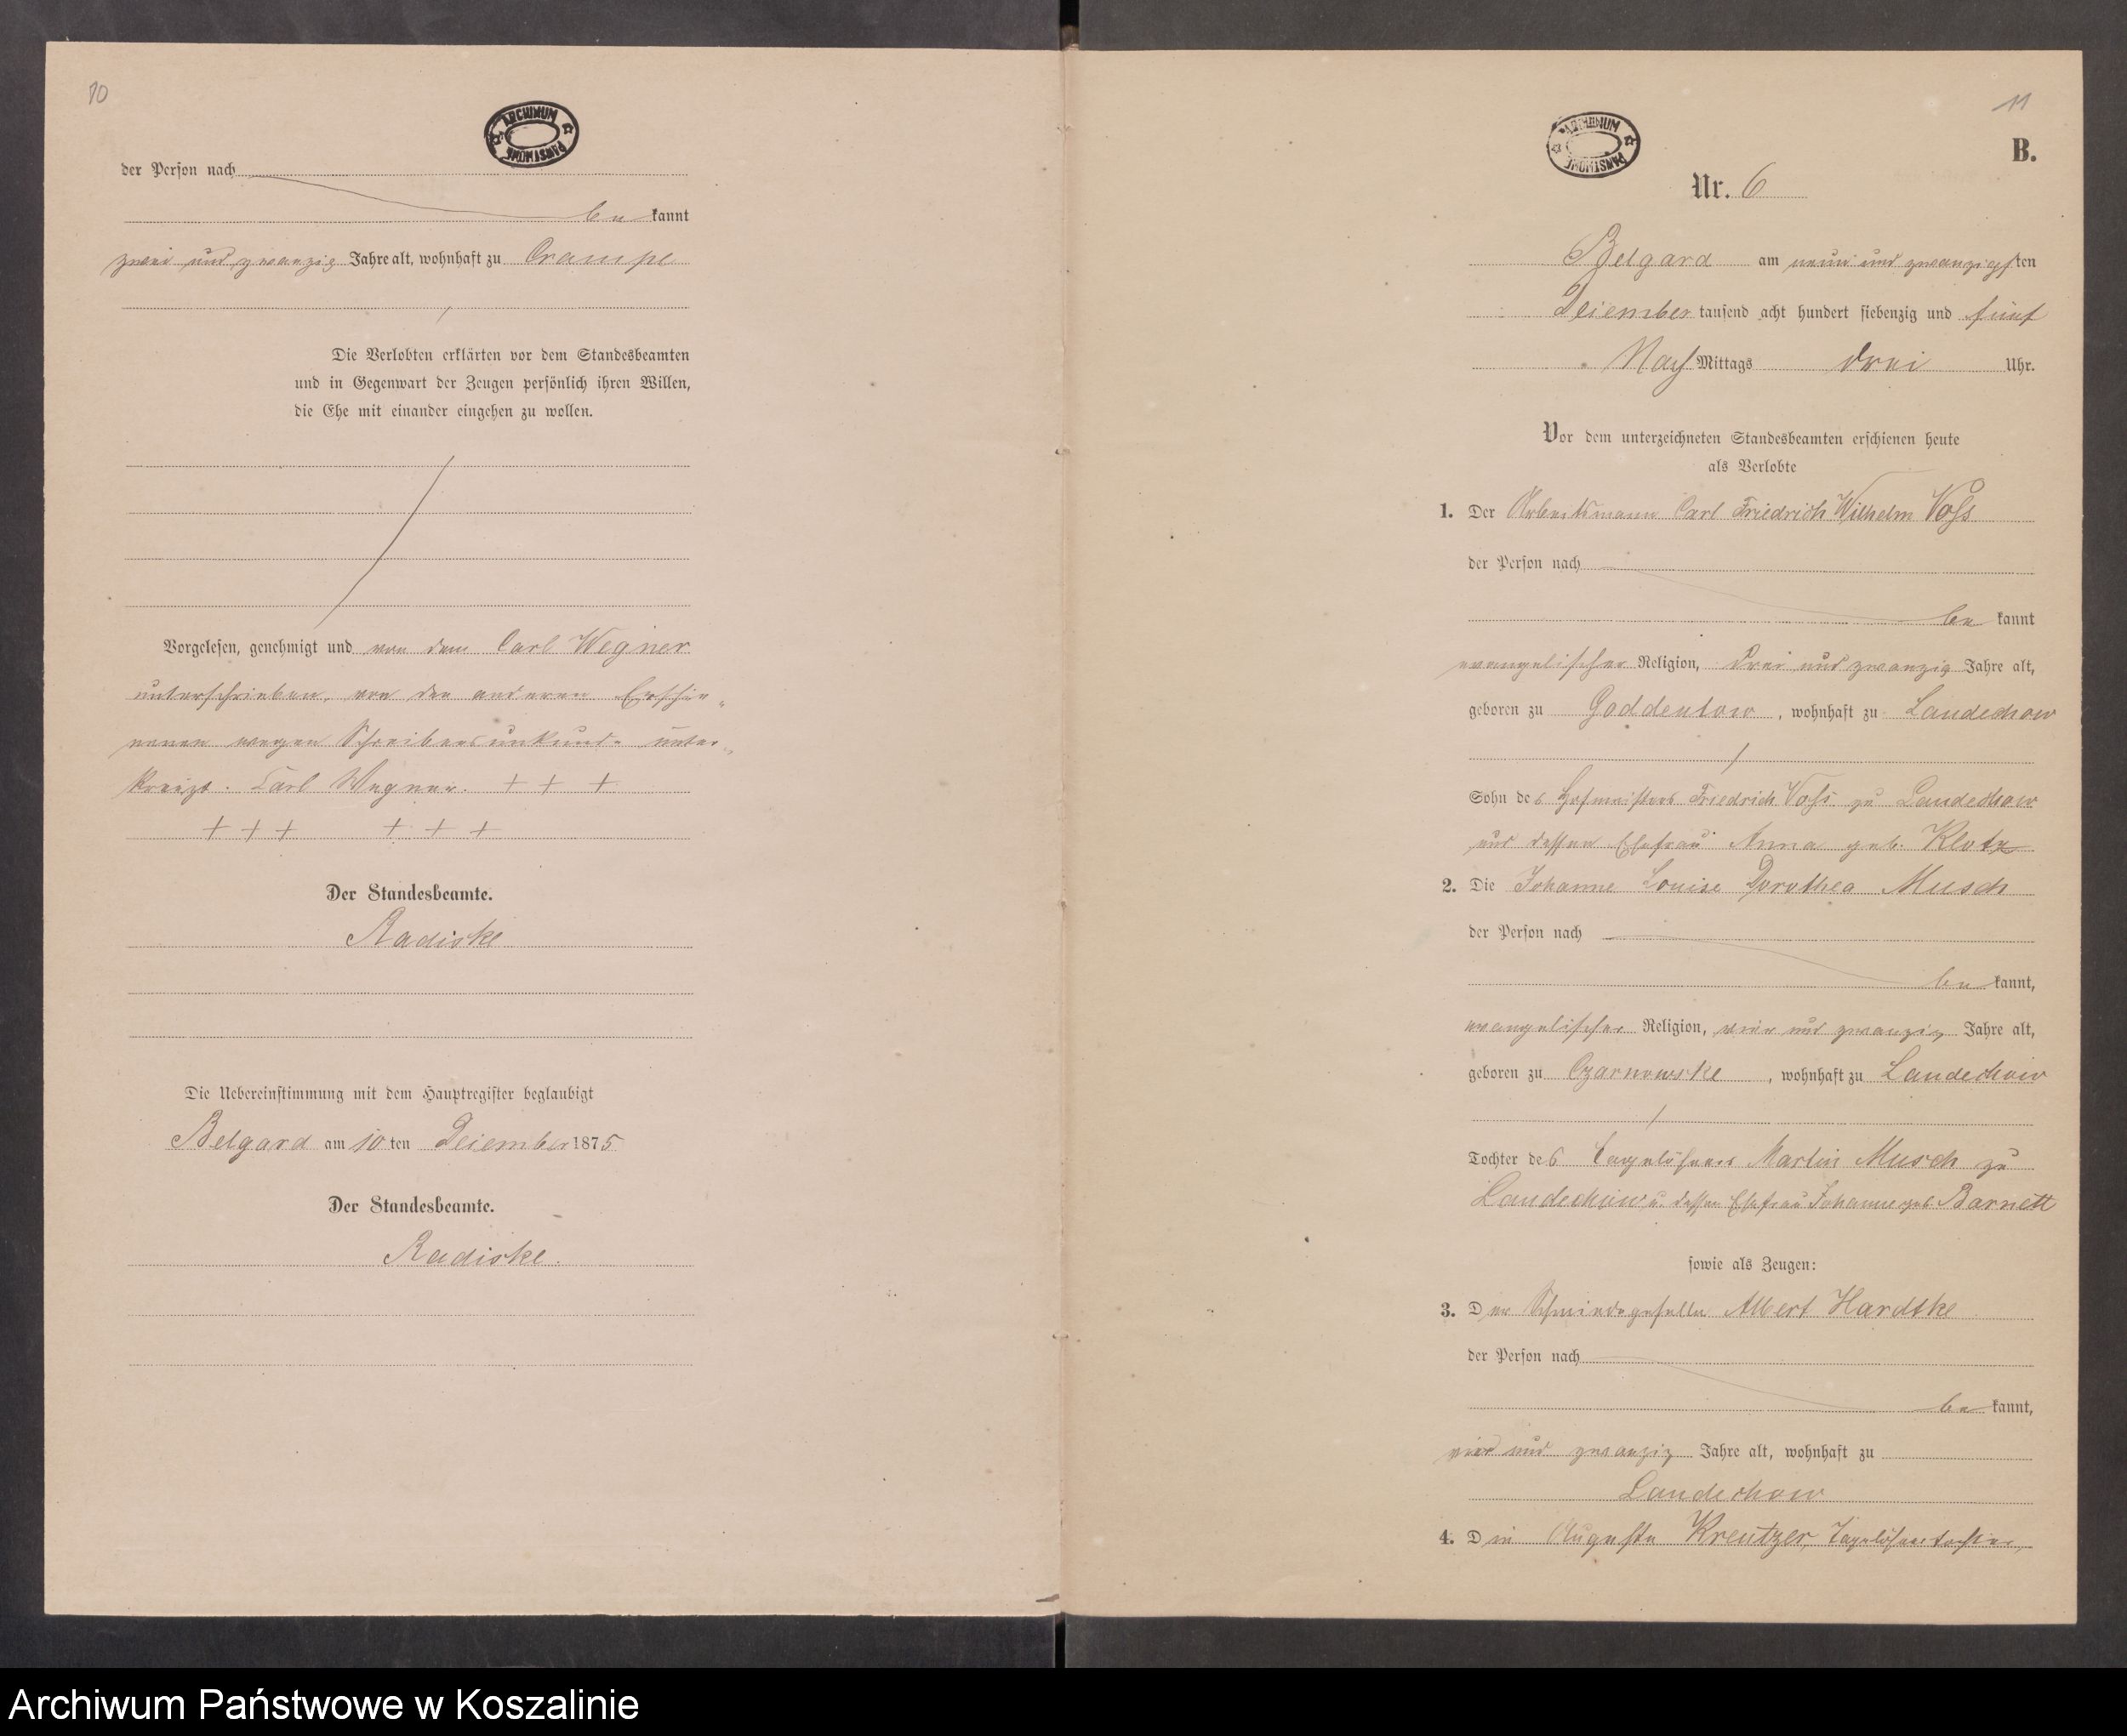 10
ARCHIWUM PAŃSTWOWE
der Person nach
be kannt
zwei und zwanzig Jahre alt, wohnhaft zu Crampe
Die Verlobten erklärten vor dem Standesbeamten
und in Gegenwart der Zeugen persönlich ihren Willen,
die Ehe mit einander eingehen zu wollen.
Vorgelesen, genehmigt und von dem Carl Wegner
unterschrieben, von den anderen Erschie„
nenen wegen Schreibensunkunde unter„
kreuzt. Carl Wegner. + + +
+ + + + + +
Der Standesbeamte.
Radiske
Die Uebereinstimmung mit dem Hauptregister beglaubigt
Belgard am 10 ten Dezember 1875
Der Standesbeamte.
Radiske.
11
ARCHIWUM PAŃSTWOWE
B.
Nr. 6
Belgard am neun und zwanzigsten
Dezember tausend acht hundert siebenzig und fünf
Nach Mittags drei Uhr.
Vor dem unterzeichneten Standesbeamten erschienen heute
als Verlobte
1. Der Arbeitsmann Carl Friedrich Wilhelm Voss
der Person nach
be kannt
evangelischer Religion, drei und zwanzig Jahre alt,
geboren zu Goddentow, wohnhaft zu Landechow
Sohn des Hofmeisters Friedrich Voss zu Landechow
und dessen Ehefrau Anna geb. Klotz
2. Die Johanne Louise Dorothea Musch
der Person nach
be kannt,
evangelischer Religion, vier und zwanzig Jahre alt,
geboren zu Czarnowske, wohnhaft zu Landechow
Tochter des Tagelöhners Martin Musch zu
Landechow u. dessen Ehefrau Johanne geb. Barnett
sowie als Zeugen:
3. Der Schmiedegeselle Albert Hardtke
der Person nach
be kannt,
vier und zwanzig Jahre alt, wohnhaft zu
Landechow
4. Die Auguste Kreutzer, Tagelöhnertochter,
Archiwum Państwowe w Koszalinie